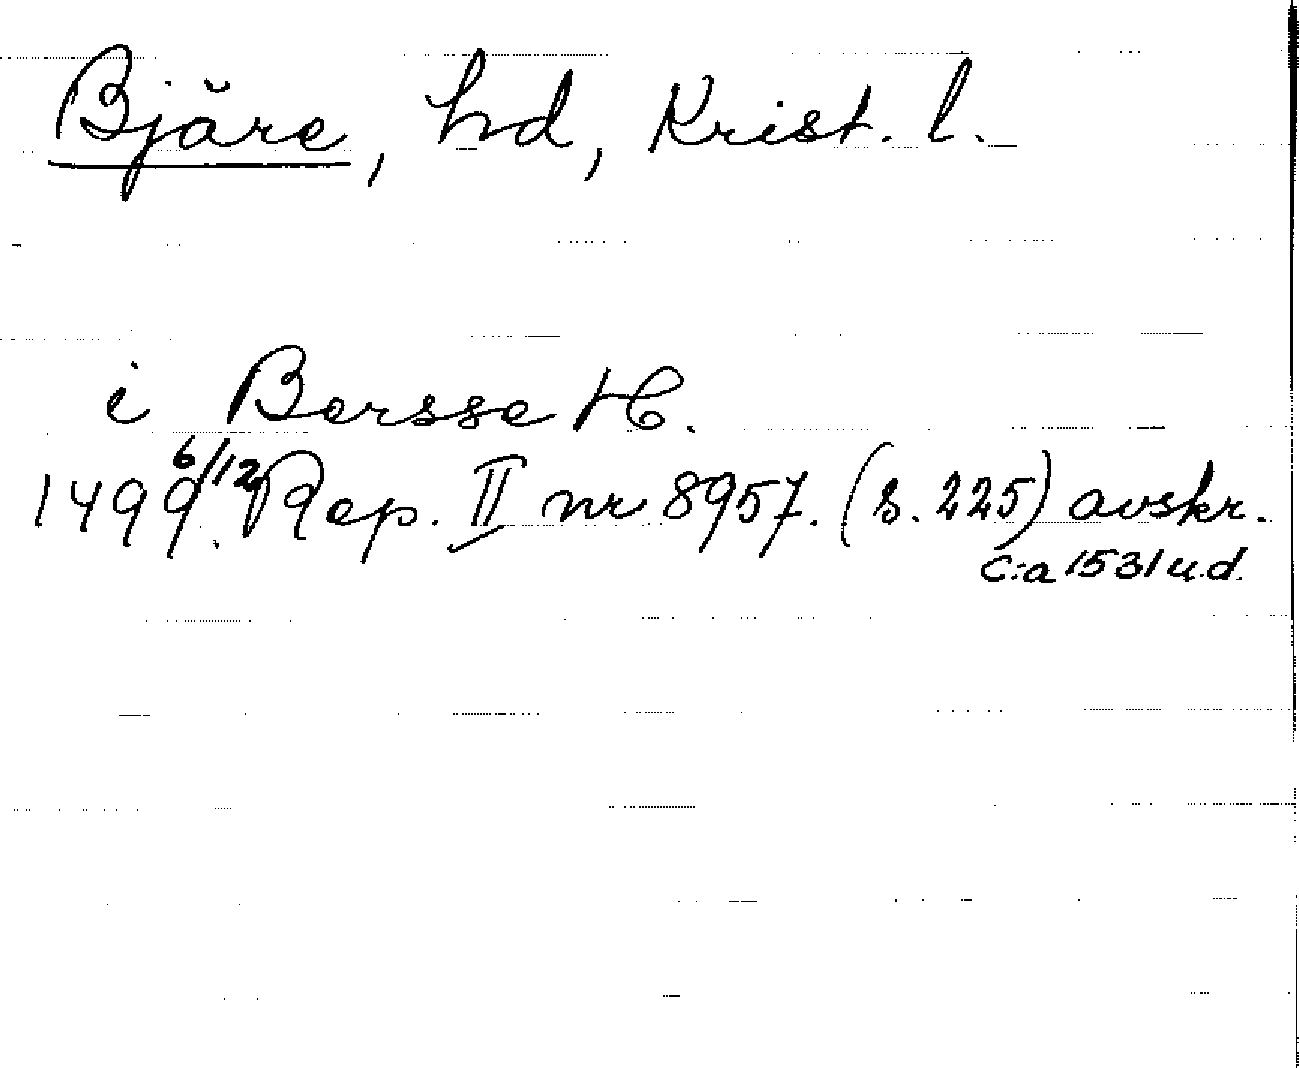 Bjäre, hd, Krist. l.
i Bersse H.
1499 6/12 Rep. II nr 8957. (s. 225) avskr.
c:a 1531 u.d.